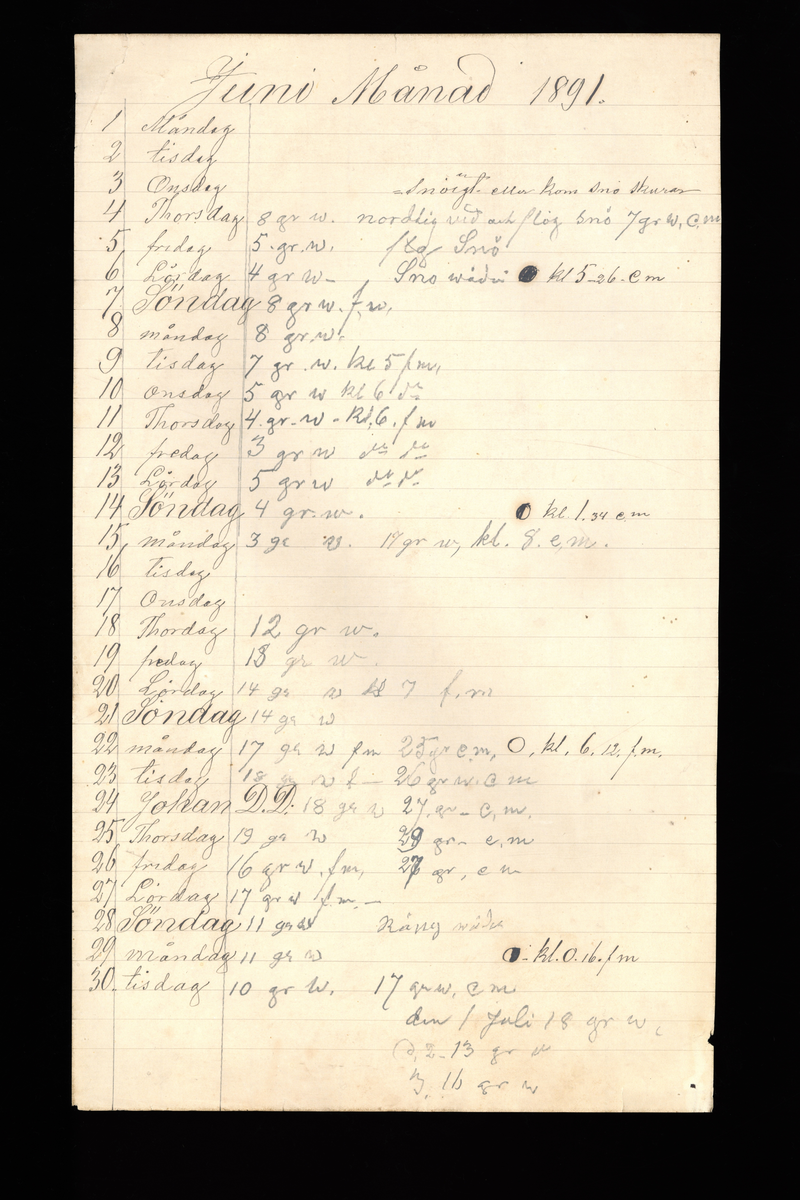 Juni Månad 1891.
1 Måndag
2 tisdag
3 Onsdag Snöigt eller kom snö skurar
4 Thorsdag 8 gr w. nordlig vid och flög snö 7 gr w, e, m
5 fredag 5. gr. w. flög Snö
6 Lördag 4 gr w - Snö kl 5-26. e m
7 Söndag 8 gr w. f, m,
8 måndag 8 gr. w.
9 tisdag 7 gr. w. kl 5 f m,
10 onsdag 5 gr w kl 6 do
11 Thorsdag 4. gr. w - kl, 6. f m
12 fredag 3 gr w do do
13 Lördag 5 gr w do do
14 Söndag 4 gr. w. kl. 1. 34 e m
15, måndag 3 gr w. 17 gr w, kl. 8. e, m.
16 tisdag
17 Onsdag
18 Thordag 12 gr w.
19 fredag 13 gr w.
20 Lördag 14 gr w kl 7 f. m
21 Söndag 14 gr w
22 måndag 17 gr w fm 25 gr e m, kl. 6. 12. f. m.
23 tisdag 18 gr w f — 26 gr w. e m
24 Johan D. D. 18 gr w 27. gr - e, m,
25 Thorsdag 19 gr w 29 gr - e, m
26 fridag 16 gr w. f m, 27 gr, e m
27 Lördag 17 gr w f m. —
28 Söndag 11 gr w
29 måndag 11 gr w kl. 0. 16. f m
30. tisdag 10 gr w. 17 gr w, e m
den 1 Juli 18 gr w,
d, 2 - 13 gr w
3, 16 gr w